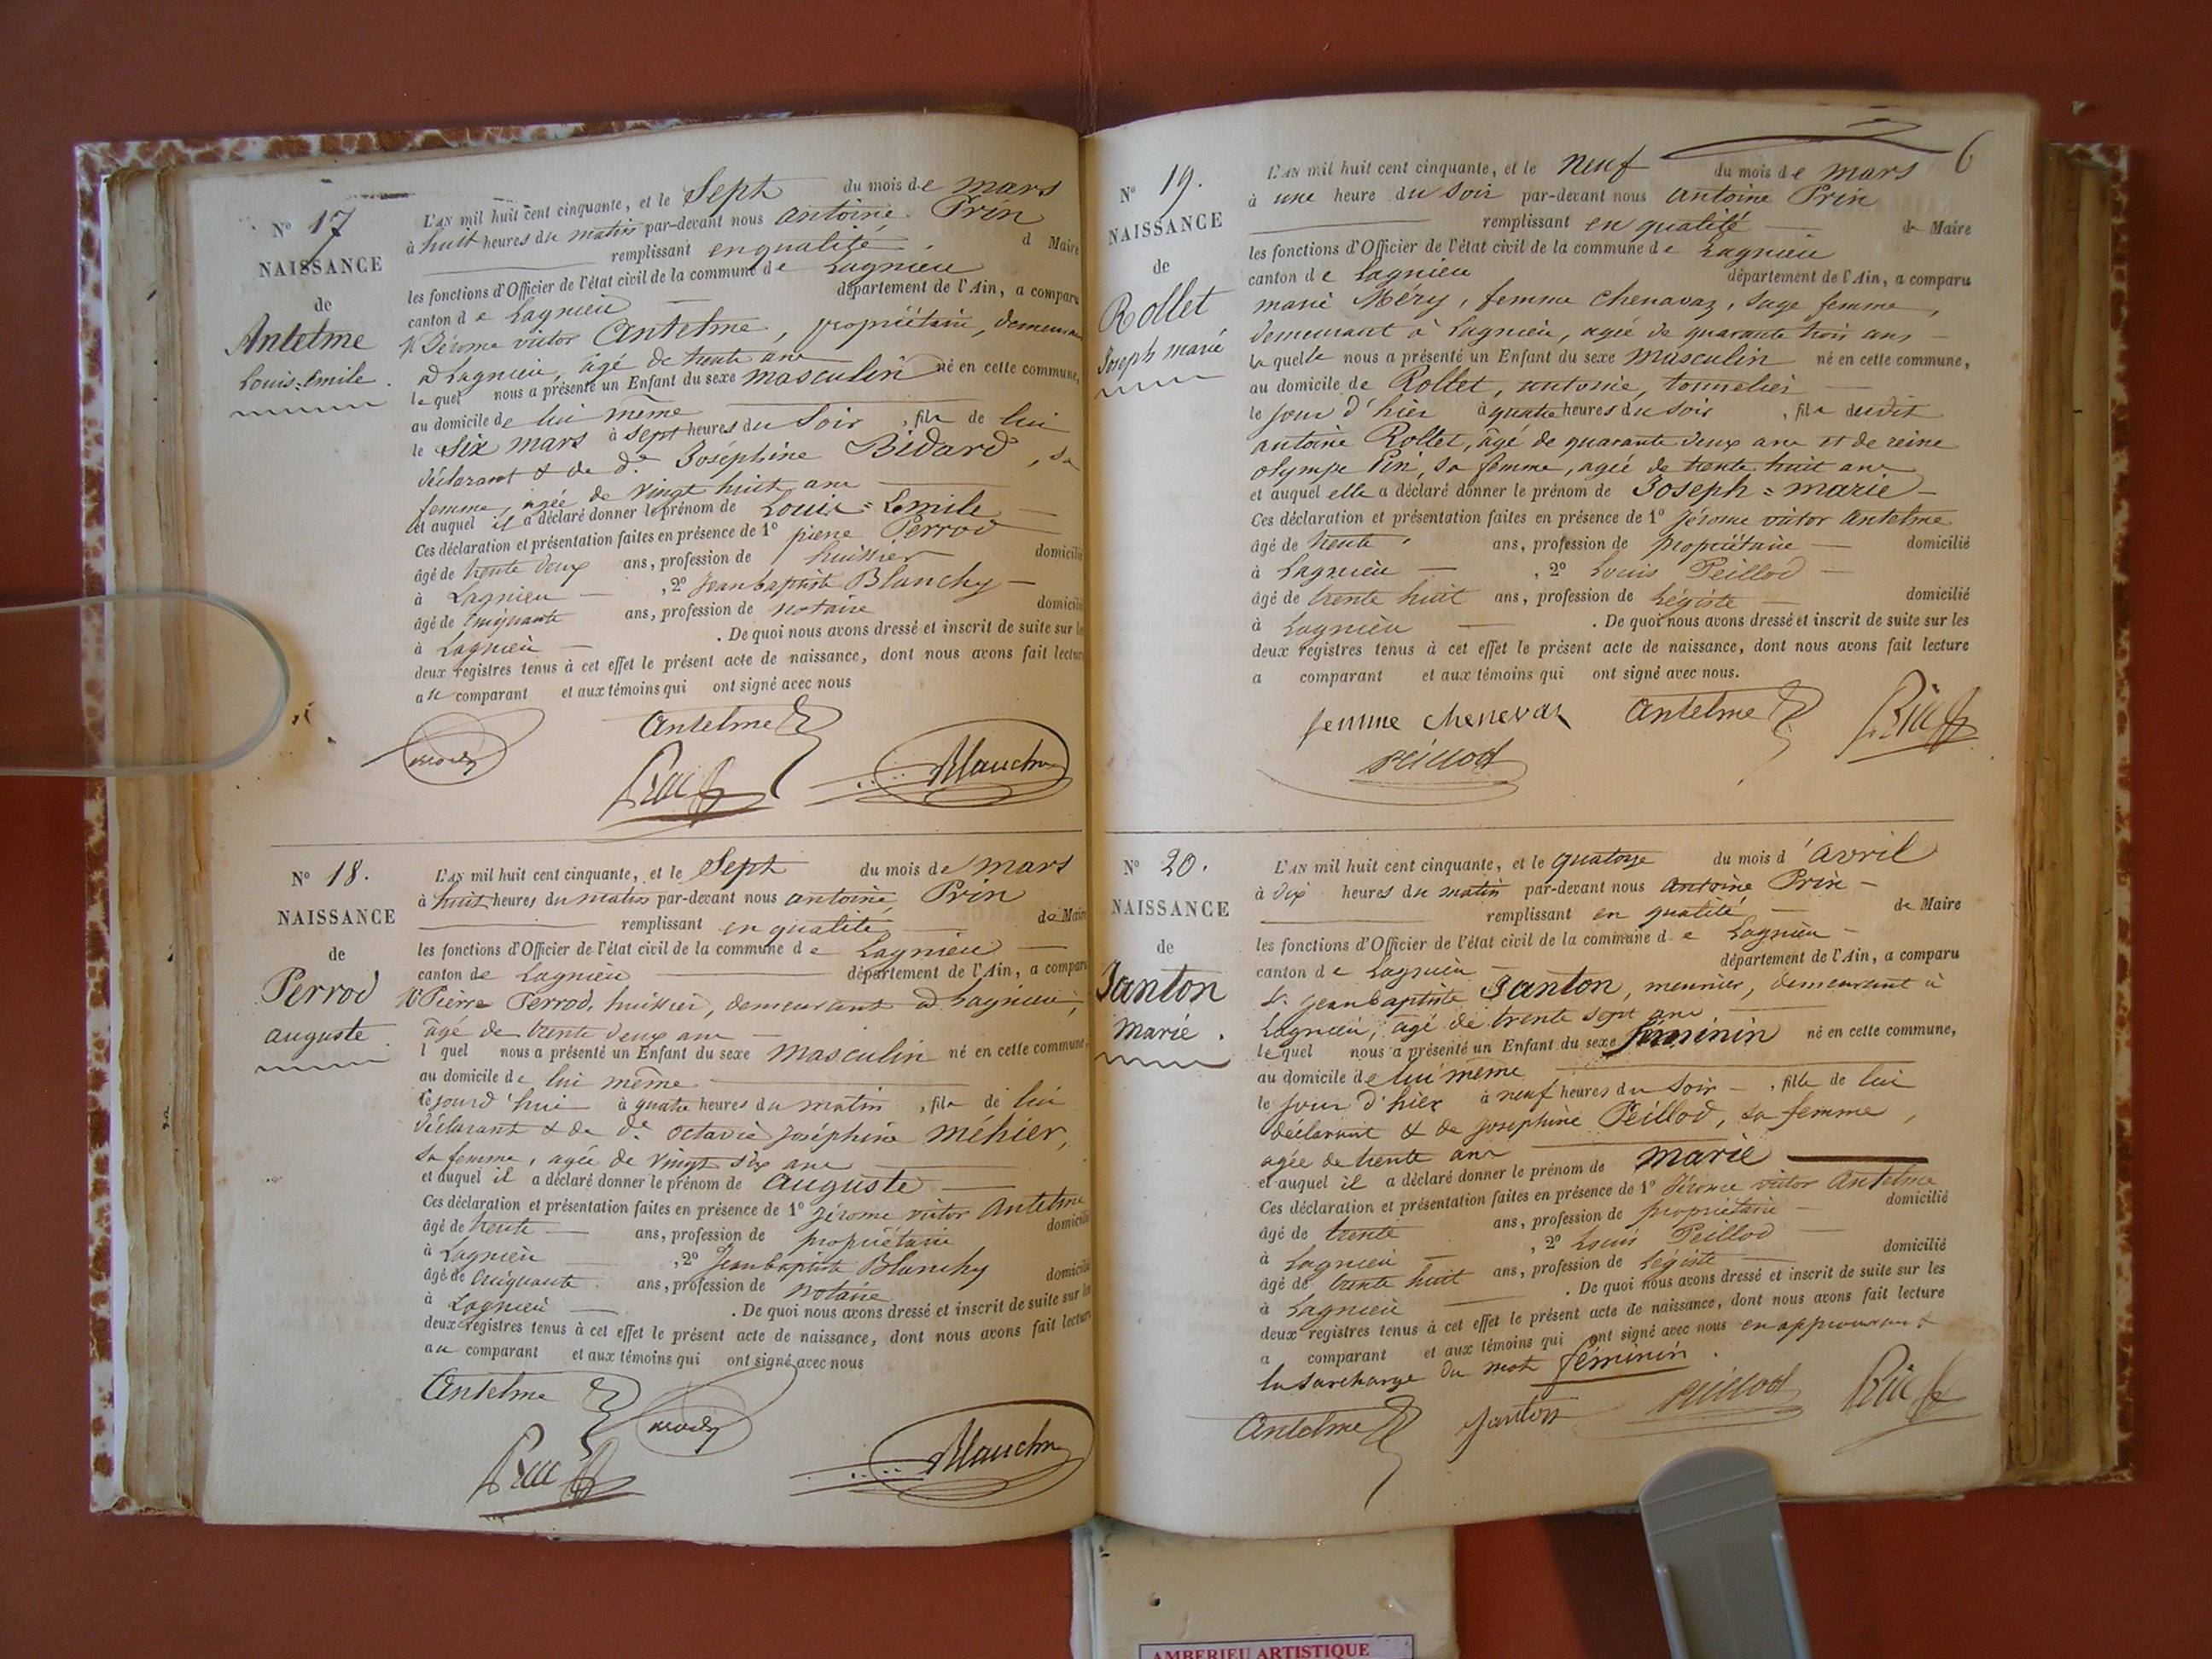 N° 17
NAISSANCE
de
Antelme
Louis Emile.
L'AN mil huit cent cinquante, et le Sept du mois de mars
à huit heures du matin par-devant nous antoine Prin
remplissant en qualité d Maire
les fonctions d'Officier de l'état civil de la commune de Lagnieu
canton de Lagnieu département de l'Ain, a comparu
Mr Jérome victor Antelme, propriétaire, demeurant
à Lagnieu, âgé de trente ans
lequel nous a présenté un Enfant du sexe masculin né en cette commune,
au domicile de lui même
le Six mars à sept heures du Soir, fils de lui
déclarant & de de Joséphine Bidard, sa
femme, agée de vingt huit ans
et auquel il a déclaré donner le prénom de Louis=Emile
Ces déclaration et présentation faites en présence de 1° pierre Perrod
âgé de trente deux ans, profession de huissier domicilié
à Lagnieu, 2° Jean baptiste Blanchy
âgé de cinquante ans, profession de notaire domicilié
à Lagnieu. De quoi nous avons dressé et inscrit de suite sur les
deux registres tenus à cet effet le présent acte de naissance, dont nous avons fait lecture
au comparant et aux témoins qui ont signé avec nous
Antelme
Blanchy
N° 18.
NAISSANCE
de
Perrod
auguste.
L'AN mil huit cent cinquante, et le Sept du mois de mars
à huit heures du matin par-devant nous antoine Prin
remplissant en qualité de Maire
les fonctions d'Officier de l'état civil de la commune de Lagnieu
canton de Lagnieu département de l'Ain, a comparu
Mr Pierre Perrod, huissier, demeurant à Lagnieu,
âgé de trente deux ans
l quel nous a présenté un Enfant du sexe masculin né en cette commune,
au domicile de lui même
cejourd'hui à quatre heures du matin, fils de lui
déclarant & de de octavie joséphine méhier,
sa femme, agée de vingt six ans
et auquel il a déclaré donner le prénom de auguste
Ces déclaration et présentation faites en présence de 1° jérome victor Antelme
âgé de trente ans, profession de propriétaire domicilié
à Lagnieu, 2° Jean baptiste Blanchy
âgé de cinquante ans, profession de notaire domicilié
à Lagnieu. De quoi nous avons dressé et inscrit de suite sur les
deux registres tenus à cet effet le présent acte de naissance, dont nous avons fait lecture
au comparant et aux témoins qui ont signé avec nous
Antelme
Blanchy
6
N° 19.
NAISSANCE
de
Rollet
Joseph marie
L'AN mil huit cent cinquante, et le neuf du mois de mars
à une heure du Soir par-devant nous antoine Prin
remplissant en qualité de Maire
les fonctions d'Officier de l'état civil de la commune de Lagnieu
canton de Lagnieu département de l'Ain, a comparu
marie Méry, femme chenavaz, sage femme,
demeurant à Lagnieu, agée de quarante trois ans
laquelle nous a présenté un Enfant du sexe masculin né en cette commune,
au domicile de Rollet, antoine, tonnelier
le jour d'hier à quatre heures du soir, fils dudit
antoine Rollet, âgé de quarante deux ans et de reine
olympe Pin, sa femme, agée de trente huit ans
et auquel elle a déclaré donner le prénom de Joseph=marie
Ces déclaration et présentation faites en présence de 1° Jérome victor Antelme
âgé de trente ans, profession de propriétaire domicilié
à Lagnieu, 2° Louis Peillod
âgé de trente huit ans, profession de Légiste domicilié
à Lagnieu. De quoi nous avons dressé et inscrit de suite sur les
deux registres tenus à cet effet le présent acte de naissance, dont nous avons fait lecture
a comparant et aux témoins qui ont signé avec nous.
femme chenevaz Antelme
peillod
N° 20.
NAISSANCE
de
Janton
Marie.
L'AN mil huit cent cinquante, et le quatorze du mois d'avril
à dix heures du matin par-devant nous Antoine Prin
remplissant en qualité de Maire
les fonctions d'Officier de l'état civil de la commune de Lagnieu
canton de Lagnieu département de l'Ain, a comparu
Sr jean baptiste Janton, meunier, demeurant à
Lagnieu, âgé de trente sept ans
lequel nous a présenté un Enfant du sexe féminin né en cette commune,
au domicile de lui même
le jour d'hier à neuf heures du Soir, fille de lui
déclarant & de josephine Peillod, sa femme,
agée de trente ans
et auquel il a déclaré donner le prénom de marie
Ces déclaration et présentation faites en présence de 1° Jérome victor Antelme
âgé de trente ans, profession de propriétaire domicilié
à Lagnieu, 2° Louis Peillod
âgé de trente huit ans, profession de Légiste domicilié
à Lagnieu. De quoi nous avons dressé et inscrit de suite sur les
deux registres tenus à cet effet le présent acte de naissance, dont nous avons fait lecture
a comparant et aux témoins qui ont signé avec nous en approuvant
la surcharge du mot féminin.
Antelme Janton peillod
AMBERIEU ARTISTIQUE